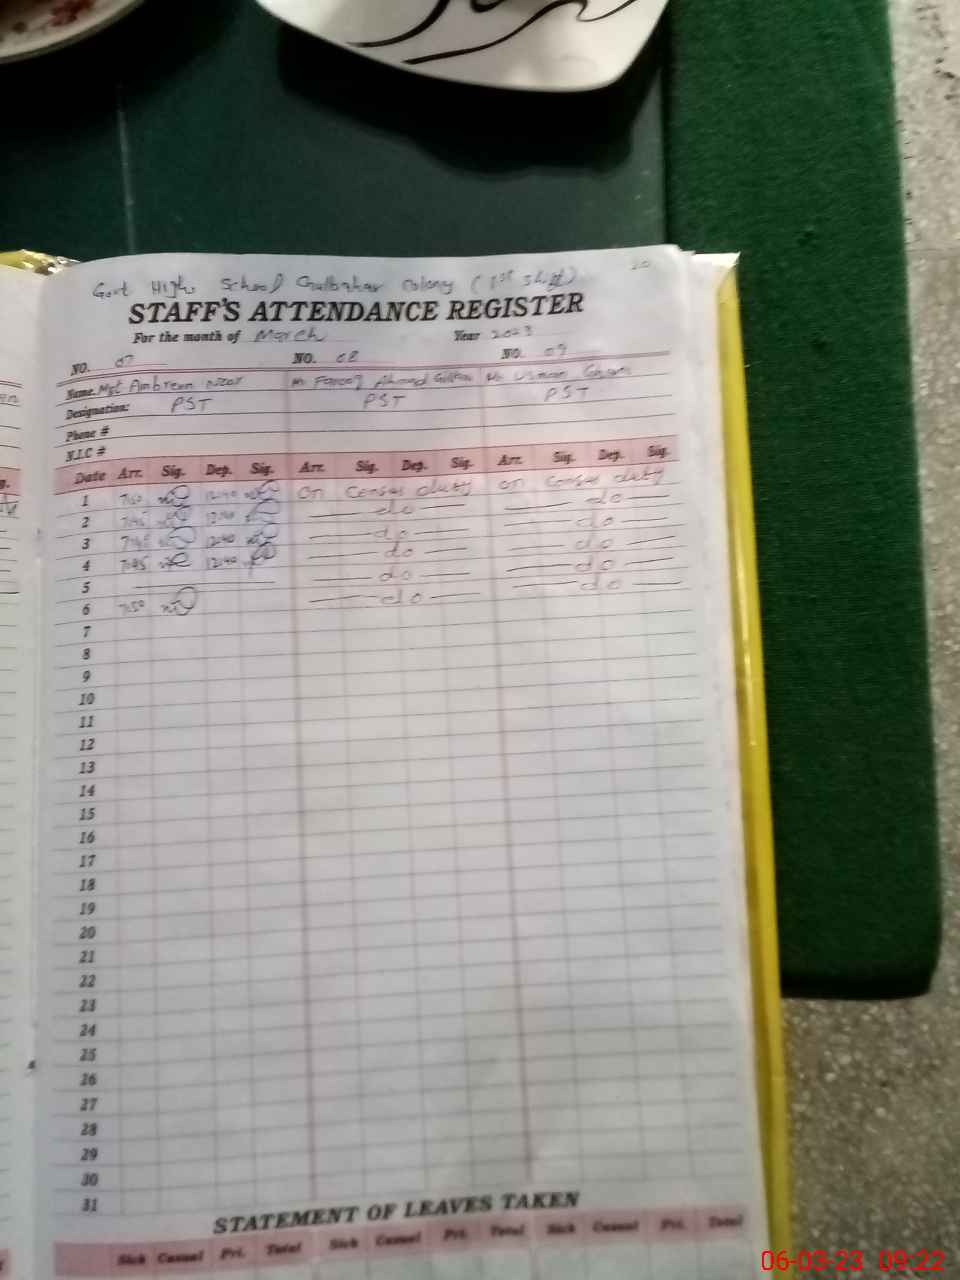 Govt High School Gulbahar Colony (1st Shift) 20
STAFF'S ATTENDANCE REGISTER
For the month of March Year 2023
NO. 07 NO. 08 NO. 09
Name. Mst Ambreen M Farooq Ahmad Mr Usman Ghani
Designation: PST PST PST
Phone #
N.I.C #
Date Arr. Sig. Dep. Sig. Arr. Sig. Dep. Sig. Arr. Sig. Dep. Sig.
1 7:50 12:40 on Census duty on Census duty
2 7:45 12:40 do do
3 7:45 12:40 do do
4 7:45 12:40 do do
5 do do
6 7:50 do do
7
8
9
10
11
12
13
14
15
16
17
18
19
20
21
22
23
24
25
26
27
28
29
30
31
STATEMENT OF LEAVES TAKEN
Sick Casual Pri. Total Sick Casual Pri. Total Sick Casual Pri. Total
06-03-23 09:22